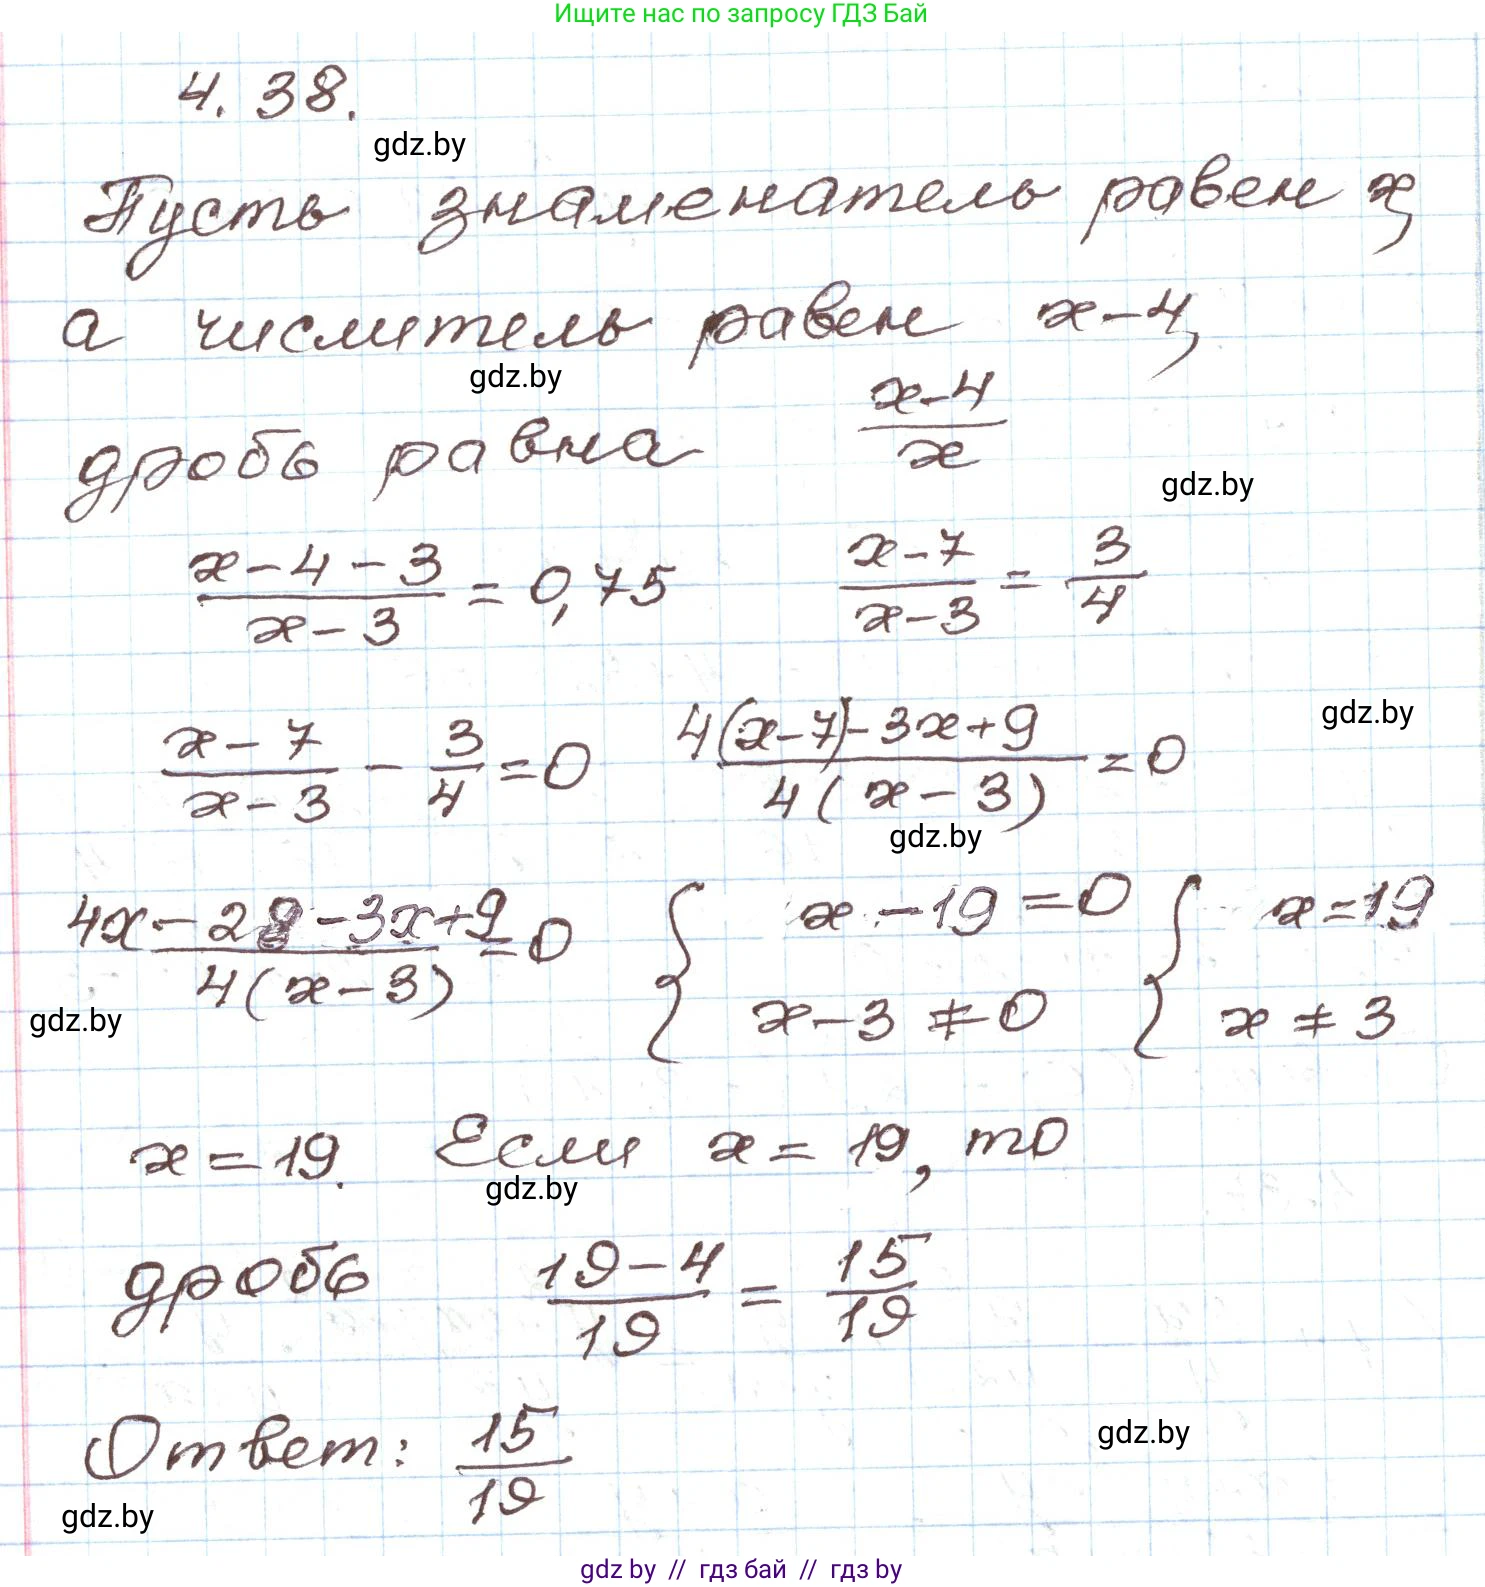 Ищите нас по запросу ГДЗ Бай
4.38.
gdz.by
Пусть знаменатель равен x,
а числитель равен x-4,
gdz.by
дробь равна (x-4)/x
gdz.by
(x-4-3)/(x-3) = 0,75 (x-7)/(x-3) = 3/4
gdz.by
(x-7)/(x-3) - 3/4 = 0 (4(x-7)-3x+9)/(4(x-3)) = 0
gdz.by
(4x-28-3x+9)/(4(x-3)) = 0 { x-19=0 { x=19
x-3≠0 x≠3
gdz.by
x=19. Если x=19, то
gdz.by
дробь (19-4)/19 = 15/19
Ответ: 15/19
gdz.by
gdz.by
gdz by // гдз бай // гдз by